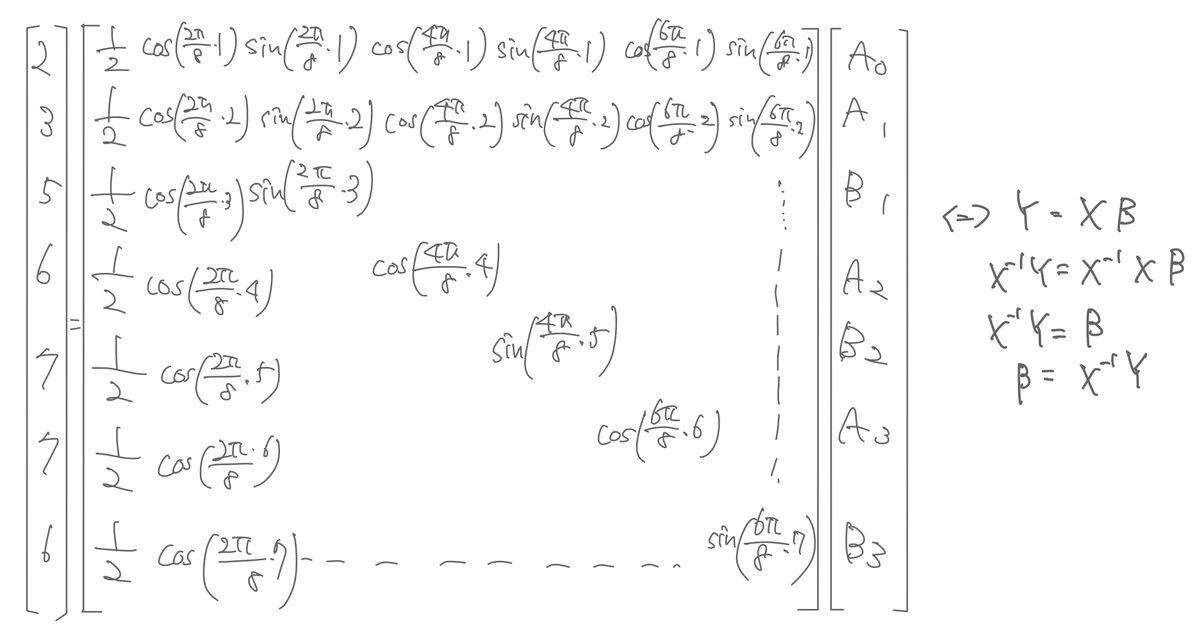 2 1/2 cos(2π/8·1) sin(2π/8·1) cos(4π/8·1) sin(4π/8·1) cos(6π/8·1) sin(6π/8·1) A₀
3 1/2 cos(2π/8·2) sin(2π/8·2) cos(4π/8·2) sin(4π/8·2) cos(6π/8·2) sin(6π/8·2) A₁
5 1/2 cos(2π/8·3) sin(2π/8·3) B₁
6 1/2 cos(2π/8·4) cos(4π/8·4) A₂
=
7 1/2 cos(2π/8·5) sin(4π/8·5) B₂
7 1/2 cos(2π/8·6) cos(6π/8·6) A₃
6 1/2 cos(2π/8·7) sin(6π/8·7) B₃
<=> Y = Xβ
X⁻¹Y = X⁻¹Xβ
X⁻¹Y = β
β = X⁻¹Y